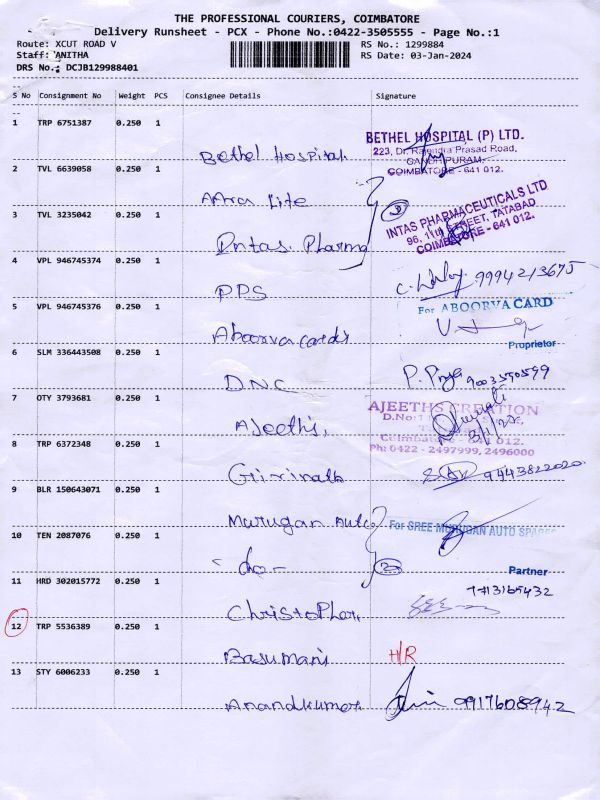 THE PROFESSIONAL COURIERS, COIMBATORE
Delivery Runsheet - PCX - Phone No.:0422-3505555 - Page No.:1
Route: XCUT ROAD V RS No.: 1299884
Staff: ANITHA RS Date: 03-Jan-2024
DRS No.: DCJB129988401
S No Consignment No Weight PCS Consignee Details Signature
1 TRP 6751387 0.250 1
Bethel Hospital
BETHEL HOSPITAL (P) LTD.
223, Dr. Rajendra Prasad Road,
GANDHIPURAM,
COIMBATORE - 641 012.
2 TVL 6639058 0.250 1
Life
3 TVL 3235042 0.250 1
Intas Pharma
INTAS PHARMACEUTICALS LTD
96, 11th STREET, TATABAD
COIMBATORE - 641 012.
4 VPL 946745374 0.250 1
PPS
9994213675
5 VPL 946745376 0.250 1
Aboorva cards
For ABOORVA CARD
Proprietor
6 SLM 336443508 0.250 1
D.N.C
P. Priya 9003550599
7 OTY 3793681 0.250 1
Ajeeths
AJEETHS CREATION
D.No:1
Coimbatore - 641 012.
Ph: 0422 - 2497999, 2496000
8 TRP 6372348 0.250 1
Girinath
9443822020
9 BLR 150643071 0.250 1
Murugan Auto
For SREE MURUGAN AUTO SPARES
Partner
10 TEN 2087076 0.250 1
- do -
2
11 HRD 302015772 0.250 1
Christopher
7413165432
12 TRP 5536389 0.250 1
Basumani
H/R
13 STY 6006233 0.250 1
Anandkumar
0917608942